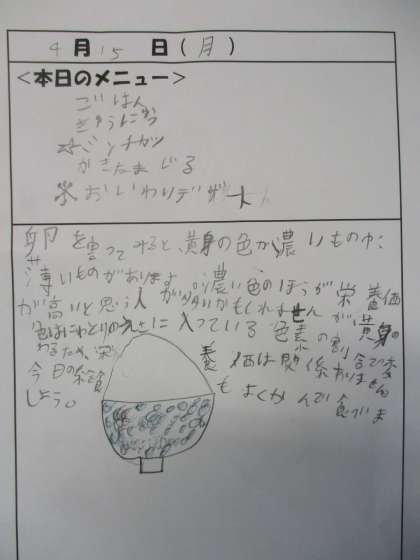 4月15日(月)
<本日のメニュー>
ごはん
ぎゅうにゅう
☆ミンチカツ
かきたまじる
※おいわいデザート
卵を割ってみると、黄身の色が濃いものや、
薄いものがあります。濃い色のほうが栄養価
が高いと思う人が多いかもしれませんが、黄身の
色はにわとりのえさに入っている色素の割合で変
わるため、栄養価は関係ありません
今日の給食もよくかんで食べま
しょう。